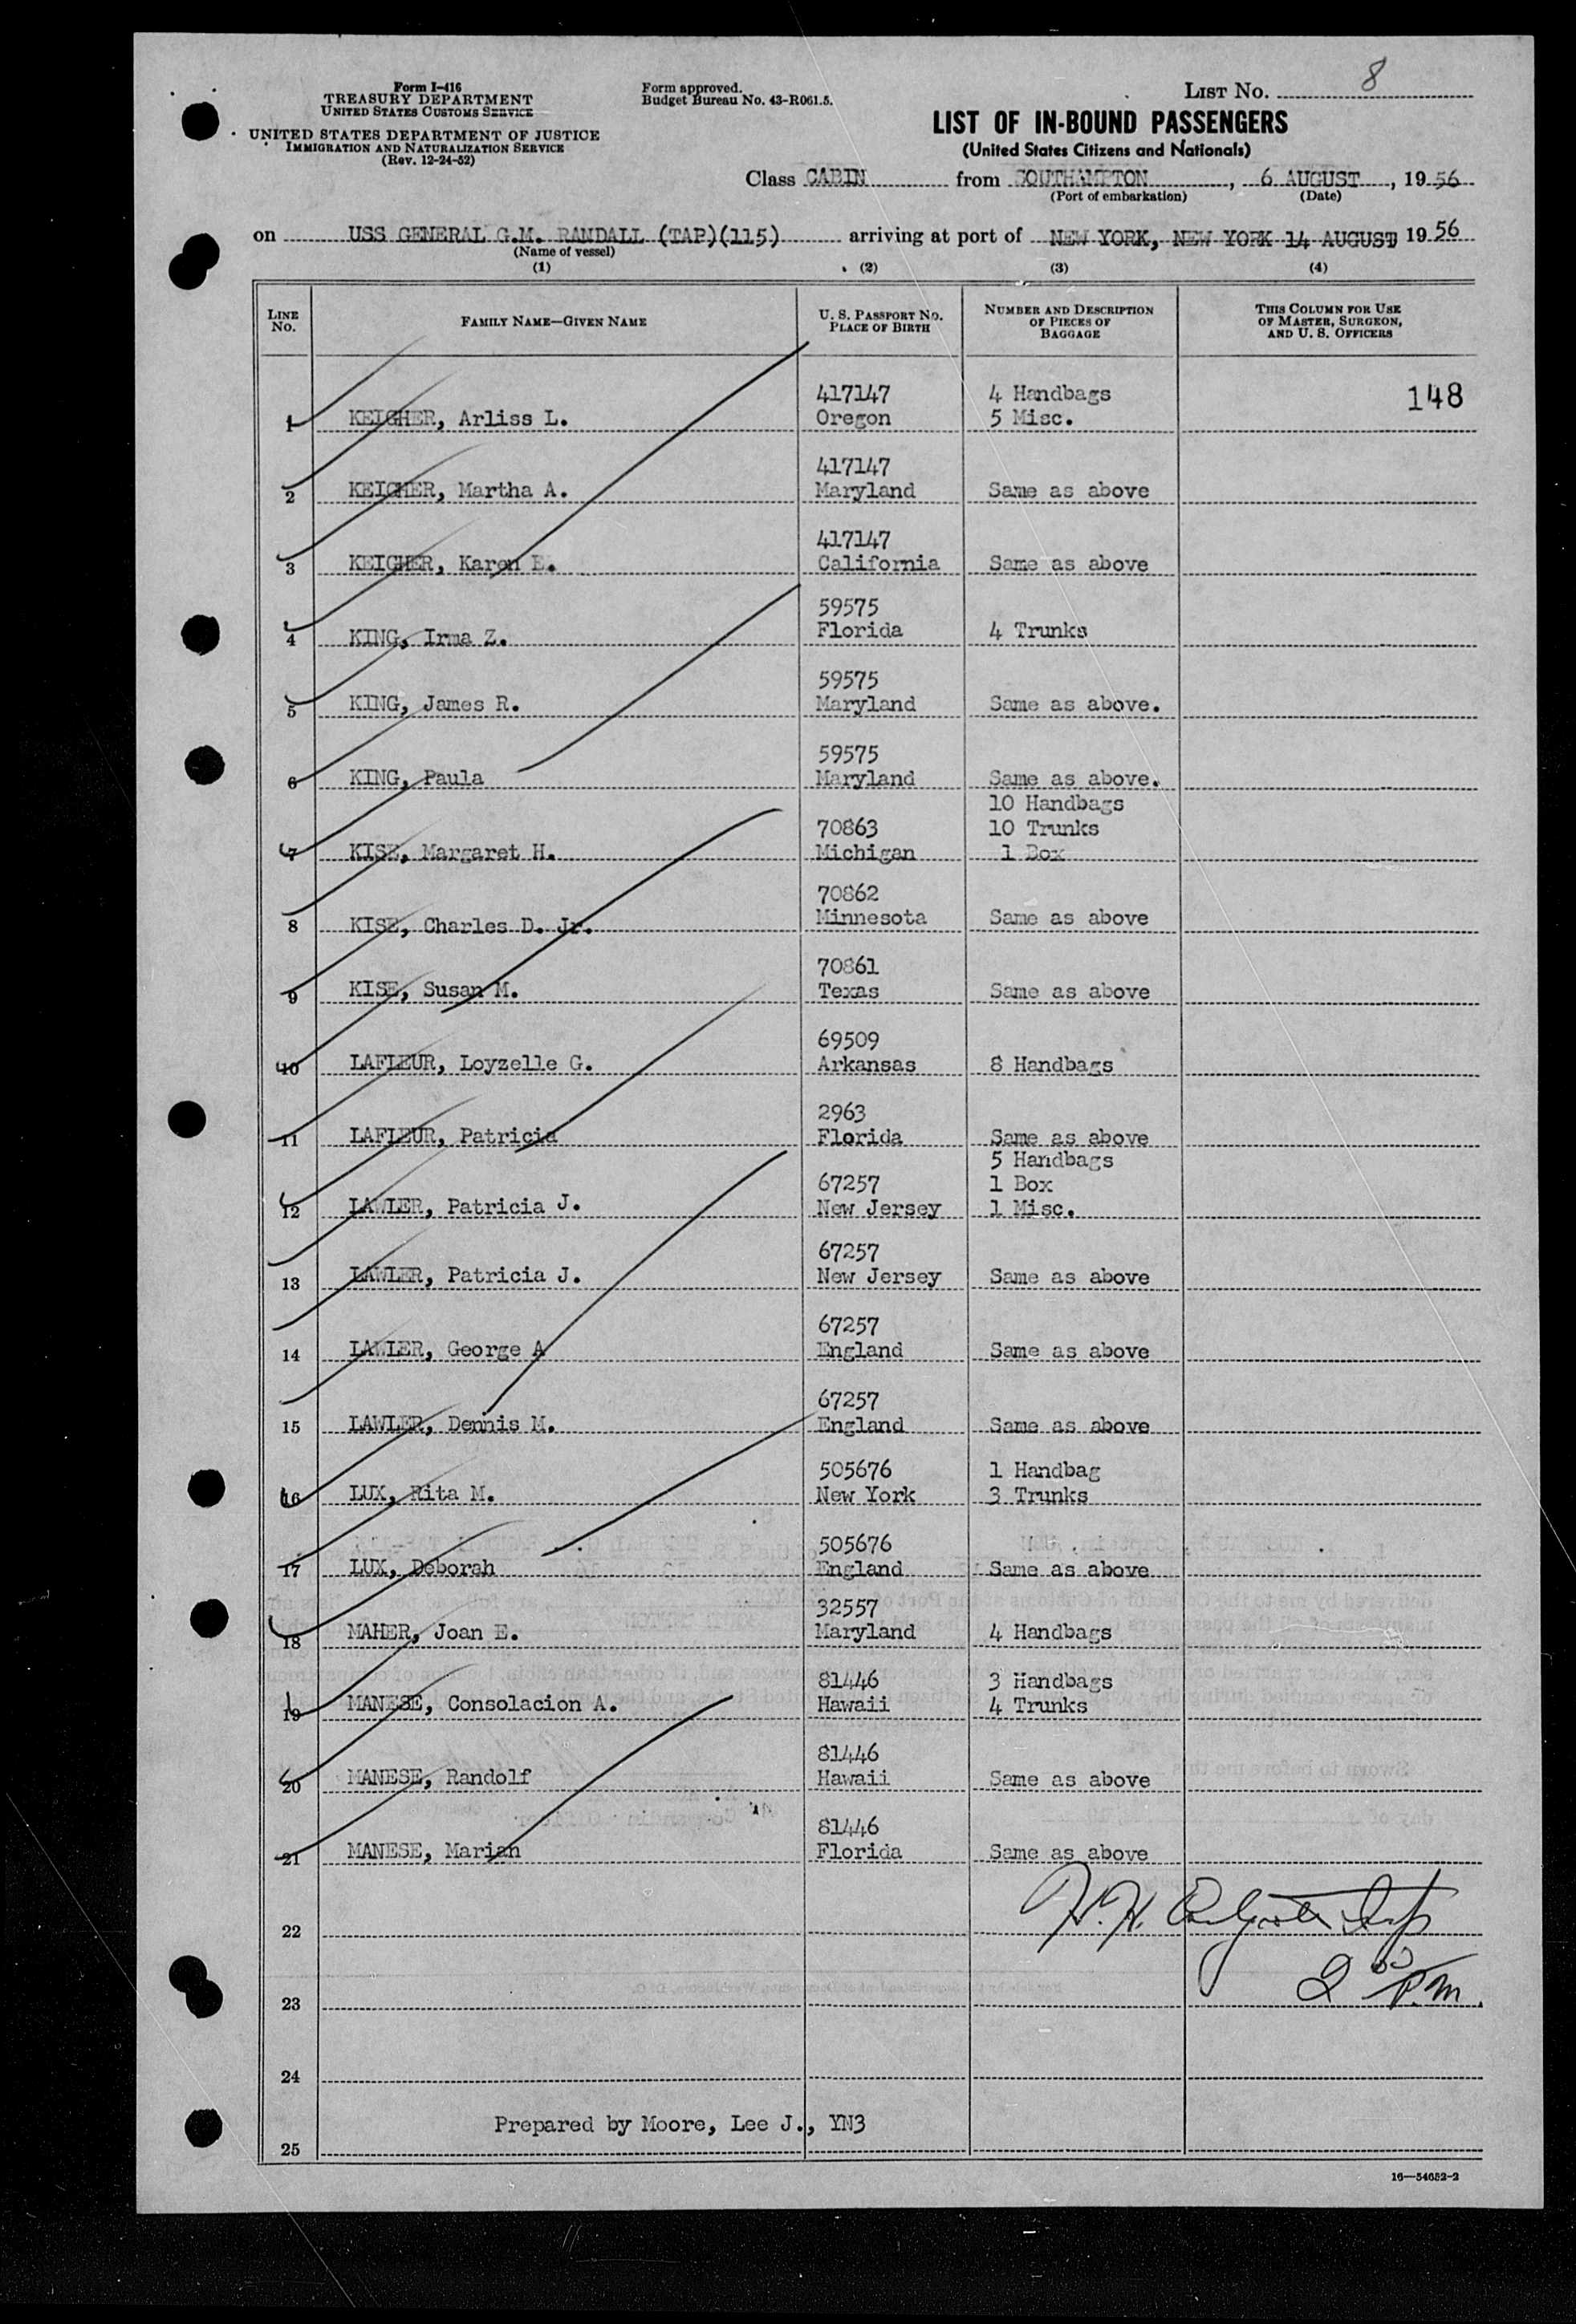 Form I-416
TREASURY DEPARTMENT
UNITED STATES CUSTOMS SERVICE
UNITED STATES DEPARTMENT OF JUSTICE
IMMIGRATION AND NATURALIZATION SERVICE
(Rev. 12-24-52)
Form approved.
Budget Bureau No. 43-R061.5.
LIST NO. 8
LIST OF IN-BOUND PASSENGERS
(United States Citizens and Nationals)
Class CABIN from SOUTHAMPTON, 6 AUGUST, 1956
(Port of embarkation) (Date)
on USS GENERAL G.M. RANDALL (TAP)(115) arriving at port of NEW YORK, NEW YORK 14 AUGUST 1956
(Name of vessel)
(1) (2) (3) (4)
LINE NO. FAMILY NAME—GIVEN NAME U. S. PASSPORT NO. PLACE OF BIRTH NUMBER AND DESCRIPTION OF PIECES OF BAGGAGE THIS COLUMN FOR USE OF MASTER, SURGEON, AND U. S. OFFICERS
417147 4 Handbags 148
1 KEIGHER, Arliss L. Oregon 5 Misc.
417147
2 KEIGHER, Martha A. Maryland Same as above
417147
3 KEIGHER, Karen E. California Same as above
59575
4 KING, Irma Z. Florida 4 Trunks
59575
5 KING, James R. Maryland Same as above.
59575
6 KING, Paula Maryland Same as above.
10 Handbags
70863 10 Trunks
7 KISE, Margaret H. Michigan 1 Box
70862
8 KISE, Charles D. Jr. Minnesota Same as above
70861
9 KISE, Susan M. Texas Same as above
69509
10 LAFLEUR, Loyzelle G. Arkansas 8 Handbags
2963
11 LAFLEUR, Patricia Florida Same as above
5 Handbags
67257 1 Box
12 LAWLER, Patricia J. New Jersey 1 Misc.
67257
13 LAWLER, Patricia J. New Jersey Same as above
67257
14 LAWLER, George A England Same as above
67257
15 LAWLER, Dennis M. England Same as above
505676 1 Handbag
16 LUX, Rita M. New York 3 Trunks
505676
17 LUX, Deborah England Same as above
32557
18 MAHER, Joan E. Maryland 4 Handbags
81446 3 Handbags
19 MANESE, Consolacion A. Hawaii 4 Trunks
81446
20 MANESE, Randolf Hawaii Same as above
81446
21 MANESE, Marian Florida Same as above
22
2 00 P.M.
23
24
Prepared by Moore, Lee J., YN3
25
16—54652-2